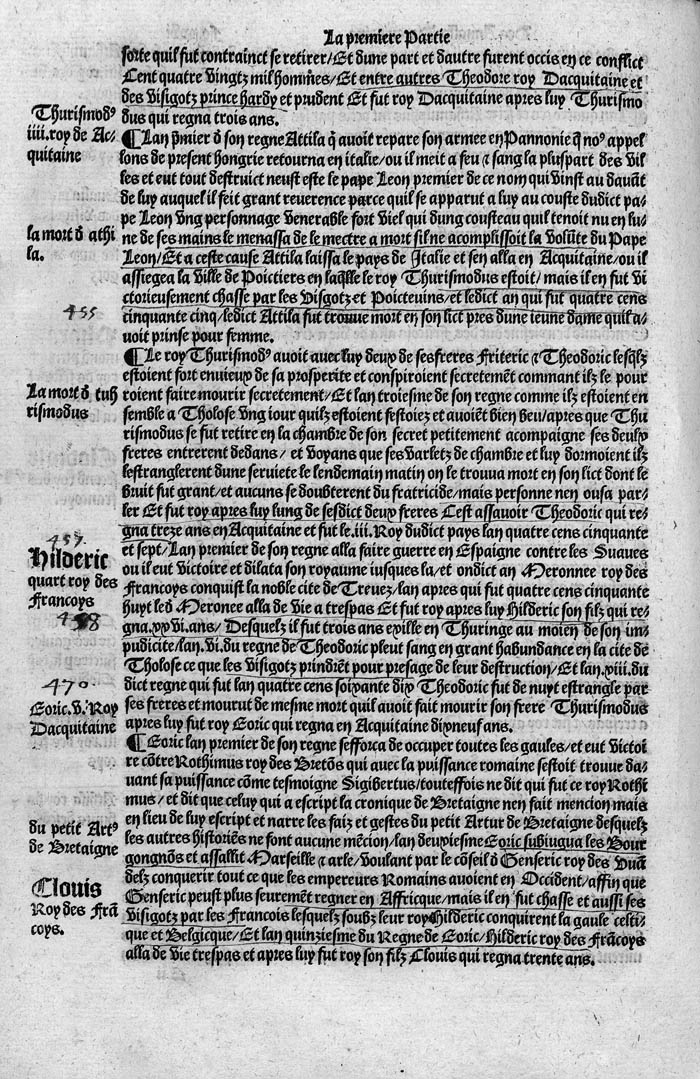 La premiere Partie
sorte quil fut contrainct se retirer/Et dune part et dautre furent occis en ce conflict
Cent quatre vingtz mil hommes/Et entre autres Theodore roy Dacquitaine et
des visigotz prince hardy et prudent Et fut roy Dacquitaine apres luy Thurismo
dus qui regna trois ans.
Thurismodꝰ
iiii.roy de Ac⸗
quitaine
¶Lan p̄mier d̄ son regne Attila q̄ auoit repare son armee en Pannonie q̄ noꝰ appel
lons de present hongrie retourna en italie/ou il meit a feu ⁊ sang la pluspart des vil
les et eut tout destruict neust este le pape Leon premier de ce nom qui vinst au dauāt
de luy auquel il feit grant reuerence parce quil se apparut a luy au couste dudict pa⸗
pe Leon vng personnage venerable fort viel qui dung cousteau quil tenoit nu en lu⸗
ne de ses mains le menassa de le mectre a mort sil ne acomplissoit la volūte du Pape
Leon/Et a ceste cause Attila laissa le pays de Italie et sen alla en Acquitaine/ou il
assiegea la ville de Poictiers en laq̄lle le roy Thurismodus estoit/mais il en fut vi
ctorieusement chasse par les Visgotz et Poicteuins/et ledict an qui fut quatre cens
cinquante cinq/ledict Attila fut trouue mort en son lict pres dune ieune dame quil a⸗
uoit prinse pour femme.
la mort d̄ athi
la.
455
¶Le roy Thurismodꝰ auoit auec luy deux de ses freres Friteric ⁊ Theodoric lesq̄lz
estoient fort enuieux de sa prosperite et conspiroient secretemēt commant ilz le pour
roient faire mourir secretement/Et lan troiesme de son regne comme ilz estoient en
semble a Tholose vng iour quilz estoient festoiez et auoiēt bien beu/apres que Thu
rismodus se fut retire en la chambre de son secret petitement acompaigne ses deulx
freres entrerent dedans/ et voyans que ses varletz de chambre et luy dormoient ilz
lestranglerent dune seruiete le lendemain matin on le trouua mort en son lict dont le
bruit fut grant/et aucuns se doubterent du fratricide/mais personne nen ousa par⸗
ler Et fut roy apres luy lung de sesdict deux freres Cest assauoir Theodoric qui re⸗
gna treze ans en Acquitaine et fut le.iii. Roy dudict pays lan quatre cens cinquante
et sept/Lan premier de son regne alla faire guerre en Espaigne contre les Suaues
ou il eut victoire et dilata son royaume iusques la/et ondict an Meronnee roy des
Francoys conquist la noble cite de Treuez/lan apres qui fut quatre cens cinquante
huyt led̄ Meronee alla de vie a trespas Et fut roy apres luy Hilderic son filz qui re⸗
gna.xxvi.ans/ Desquelz il fut trois ans exille en Thuringe au moien de son im⸗
pudicite/lan.vi.du regne de Theodoric pleut sang en grant habundance en la cite de
Tholose ce que les visigotz prindrēt pour presage de leur destruction/Et lan.xiii.du
dict regne qui fut lan quatre cens soixante dix Theodoric fut de nuyt estrangle par
ses freres et mourut de mesme mort quil auoit fait mourir son frere Thurismodus
apres luy fut roy Eoric qui regna en Acquitaine dixneuf ans.
La mort d̄ tuh
rismodus
457.
Hilderic
quart roy des
Francoys
458
470.
Eoric.v. Roy
Dacquitaine
¶Eoric lan premier de son regne sefforca de occuper toutes les gaules/et eut victoi
re cōtre Rothimus roy des Bretōs qui auec la puissance romaine sestoit trouue da⸗
uant sa puissance cōme tesmoigne Sigibertus/touteffois ne dit qui fut ce roy Rothi
mus/ et dit que celuy qui a escript la cronique de Bretaigne nen fait mencion mais
en lieu de luy escript et narre les faiz et gestes du petit Artur de Bretaigne desquelz
les autres historiēs ne font aucune mēcion/lan deuxiesme Eoric subiugua les Bour
gongnōs et assallit Marseille ⁊ arle/voulant par le cōseil d̄ Genseric roy des Vuā
delz conquerir tout ce que les empereurs Romains auoient en Occident/affin que
Genseric peust plus seuremēt regner en Affricque/mais il en fut chasse et aussi ses
visigotz par les Francois lesquelz soubz leur roy Hilderic conquirent la gaule celti⸗
que et Belgicque/Et lan quinziesme du Regne de Eoric/Hilderic roy des Frācoys
alla de vie trespas et apres luy fut roy son filz Clouis qui regna trente ans.
du petit Artꝰ
de Bretaigne
Clouis
Roy des Frā
coys.